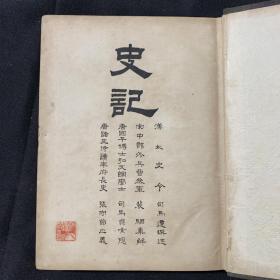 史記
漢太史令 司馬遷撰述
宋中郎外兵曹參軍 裴駰集解
唐國子博士弘文館學士 司馬貞索隱
唐諸王侍讀率府長史 張守節正義